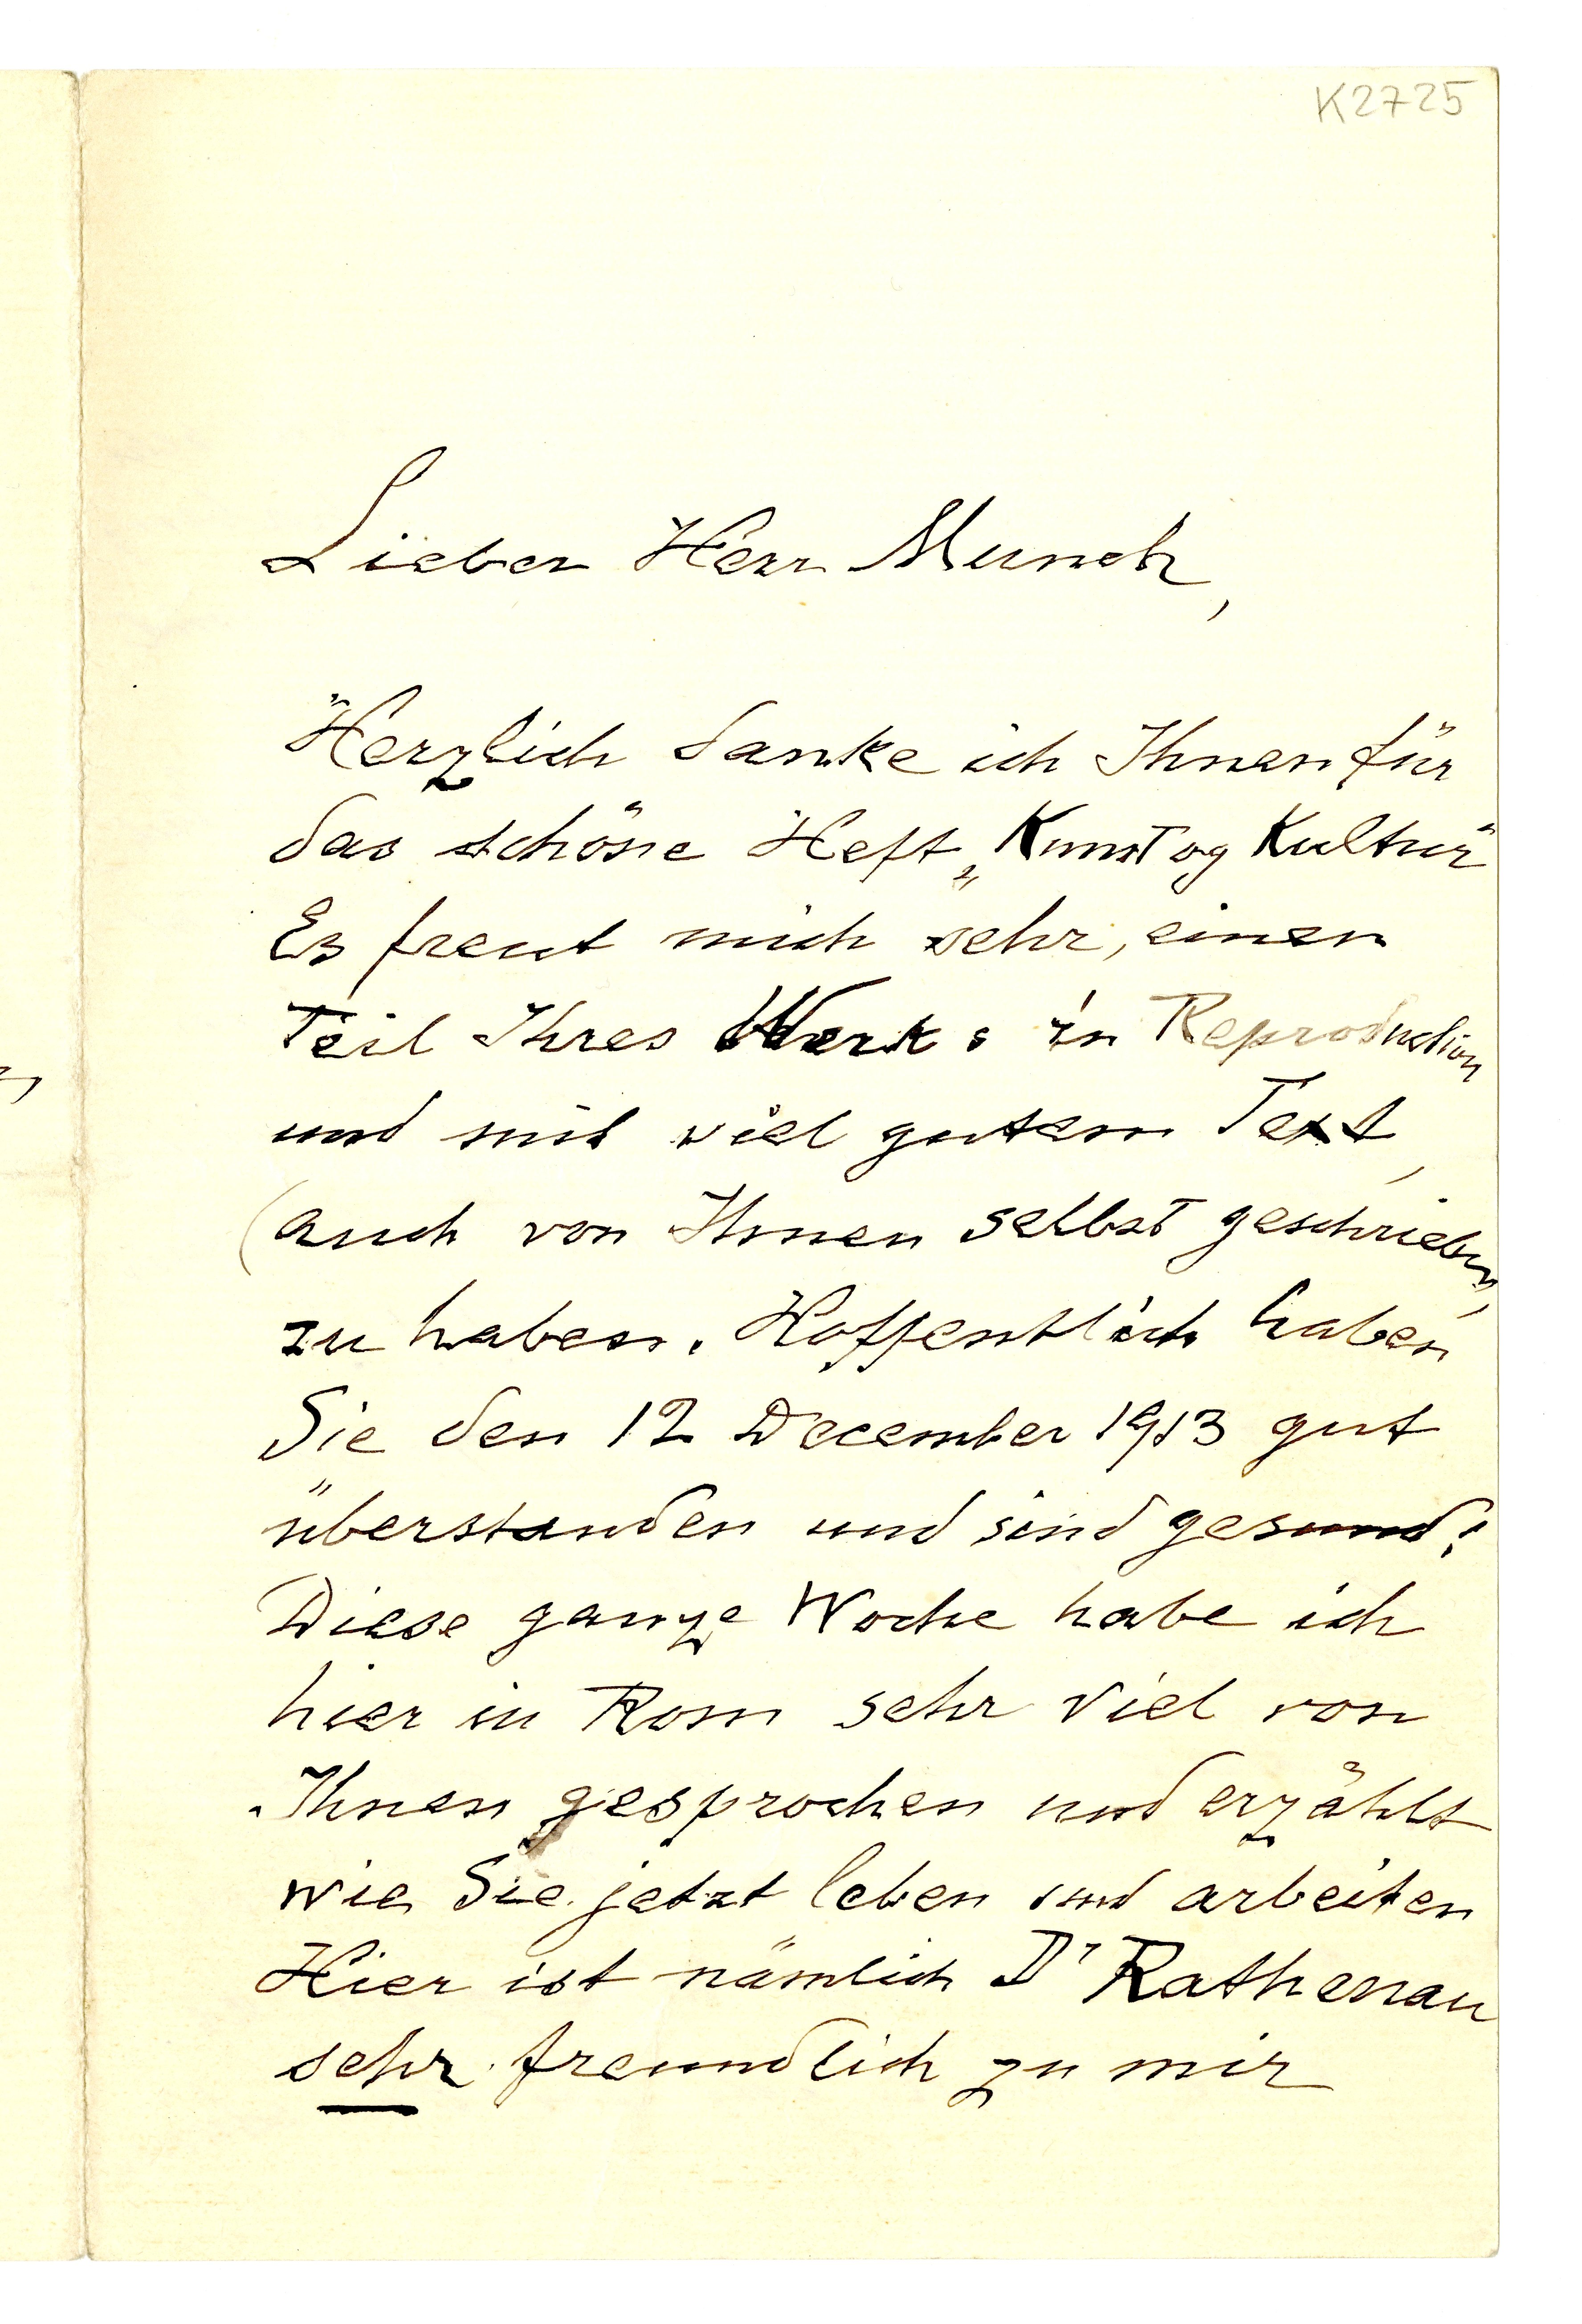 K2725
Lieber Herr Munch,
Herzlich danke ich Ihnen für
das schöne Heft „Kunst og Kultur"
Es freut mich sehr, einen
Teil Ihres Werks in Reproduction
und mit viel gutem Text,
(auch von Ihnen selbst geschrieben)
zu haben. Hoffentlich haben
Sie den 12 December 1913 gut
überstanden und sind gesund!
Diese ganze Woche habe ich
hier in Rom sehr viel von
Ihnen gesprochen und erzählt
wie Sie jetzt leben und arbeiten
Hier ist nämlich Dr Rathenau
sehr freundlich zu mir